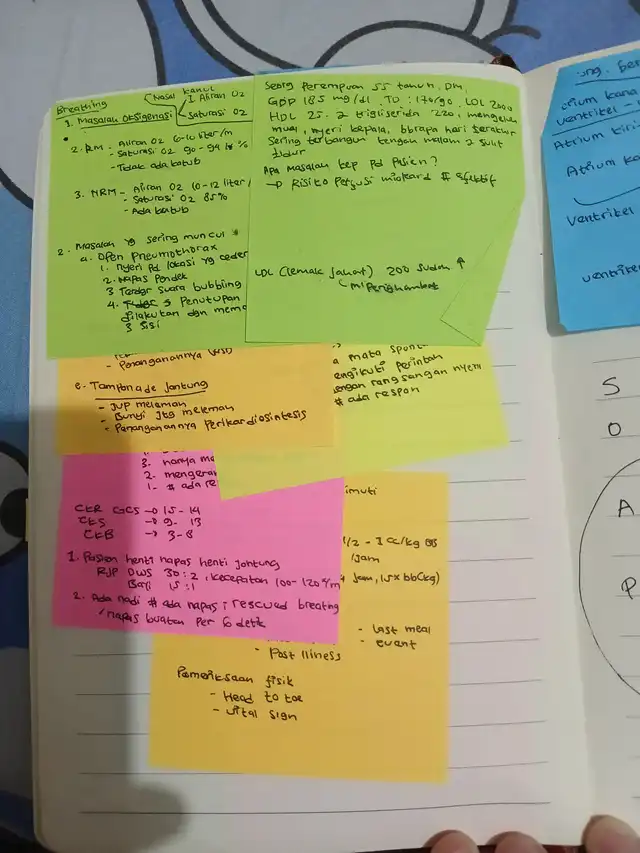 Breathing
Nasal kanul
1. Aliran O2
Saturasi O2
1. Masalah Oksigenasi
2. RM - Aliran O2 6-10 liter/m
- Saturasi O2 90-94 %
- Tidak ada katub
3. NRM - Aliran O2 10-12 liter/
- Saturasi O2 85%
- Ada katub
2. Masalah yg sering muncul
a. Open pneumothorax
1. nyeri pd lokasi yg ceder
2. napas pendek
3 Terdgr suara bubbling
4. Penutupan
dilakukan dgn mema
3 sisi
Seorg perempuan 55 tahun, DM,
GDP 185 mg/dl. TD : 170/90. LDL 200
HDL 25. 2 trigliserida 220, mengeluh
mual, nyeri kepala, bbrapa hari teratur
Sering terbangun tengah malam 2 sulit
tidur
Apa masalah kep pd pasien?
→ Risiko perfusi miokard # efektif
LDL (lemak jahat) 200 sudah ↑
Penanganannya WSD
e. Tamponade Jantung
- JVP melemah
- Bunyi Jtg melemah
- Penanganannya perikardiosintesis
a mata spont
engikuti perintah
dengan rangsangan nyeri
# ada respon
3. hanya me
2. mengera
1. # ada re
CKR GCS → 15-14
CKS → 9-13
CKB → 3-8
1. Pasien henti napas henti jantung
RJP DWS 30:2, kecepatan 100-120x/m
Bayi 15:1
2. Ada nadi # ada napas ; rescued breating
/napas buatan per 6 detik
imuti
1/2 - 1 cc/kg BB
/jam
jam, 15 x bb(kg)
- last meal
- event
- Post illness
Pemeriksaan fisik
- Head to toe
- Vital sign
ung. ber
atrium kana
ventrikel -
Atrium kiri
Atrium ka
Ventrikel
Ventrikel
S
O
A
P